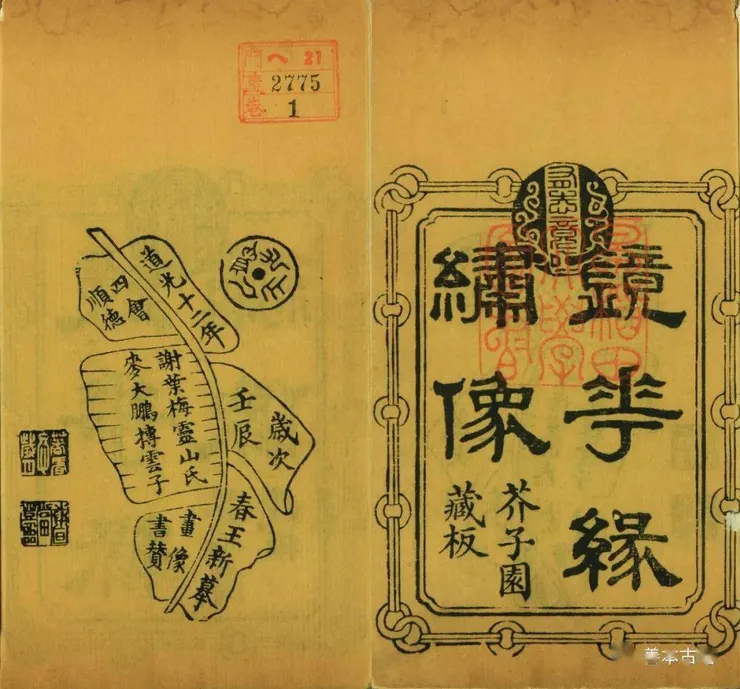 鏡花緣
繡像
芥子園
藏板
門 ヘ 21
號 2775
卷 1
道光十二年
歲次
壬辰
春王新摹
四會
順德
謝葉梅靈山氏
麥大鵬摶雲子
畫像
書贊
善本古